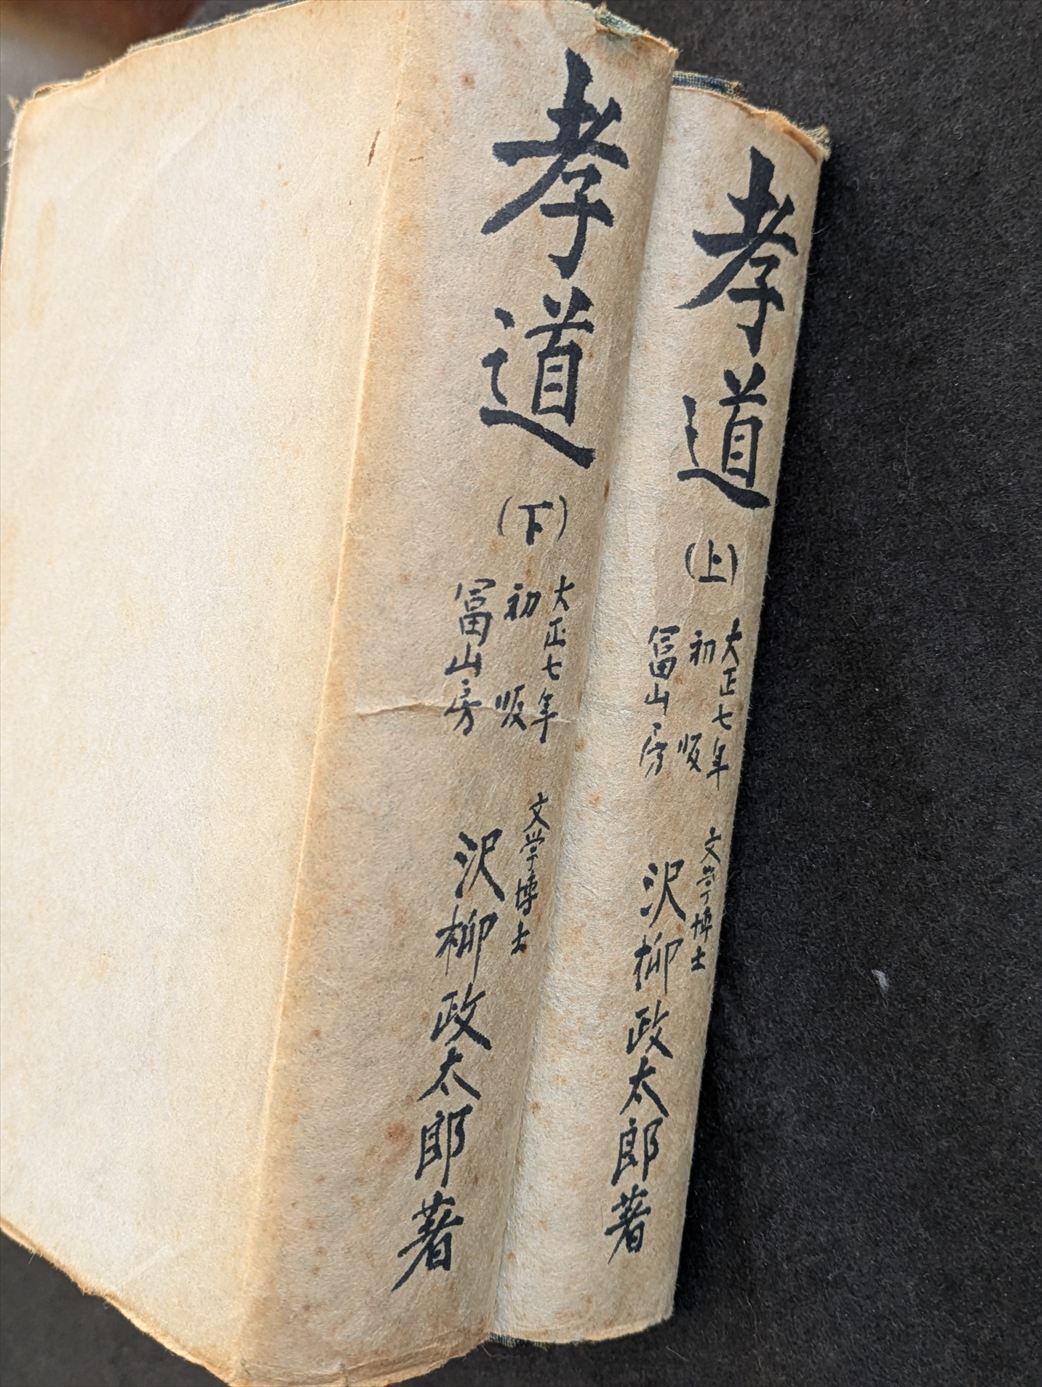 孝道
(上)
大正七年
初版
冨山房
文学博士
沢柳政太郎著
孝道
(下)
大正七年
初版
冨山房
文学博士
沢柳政太郎著